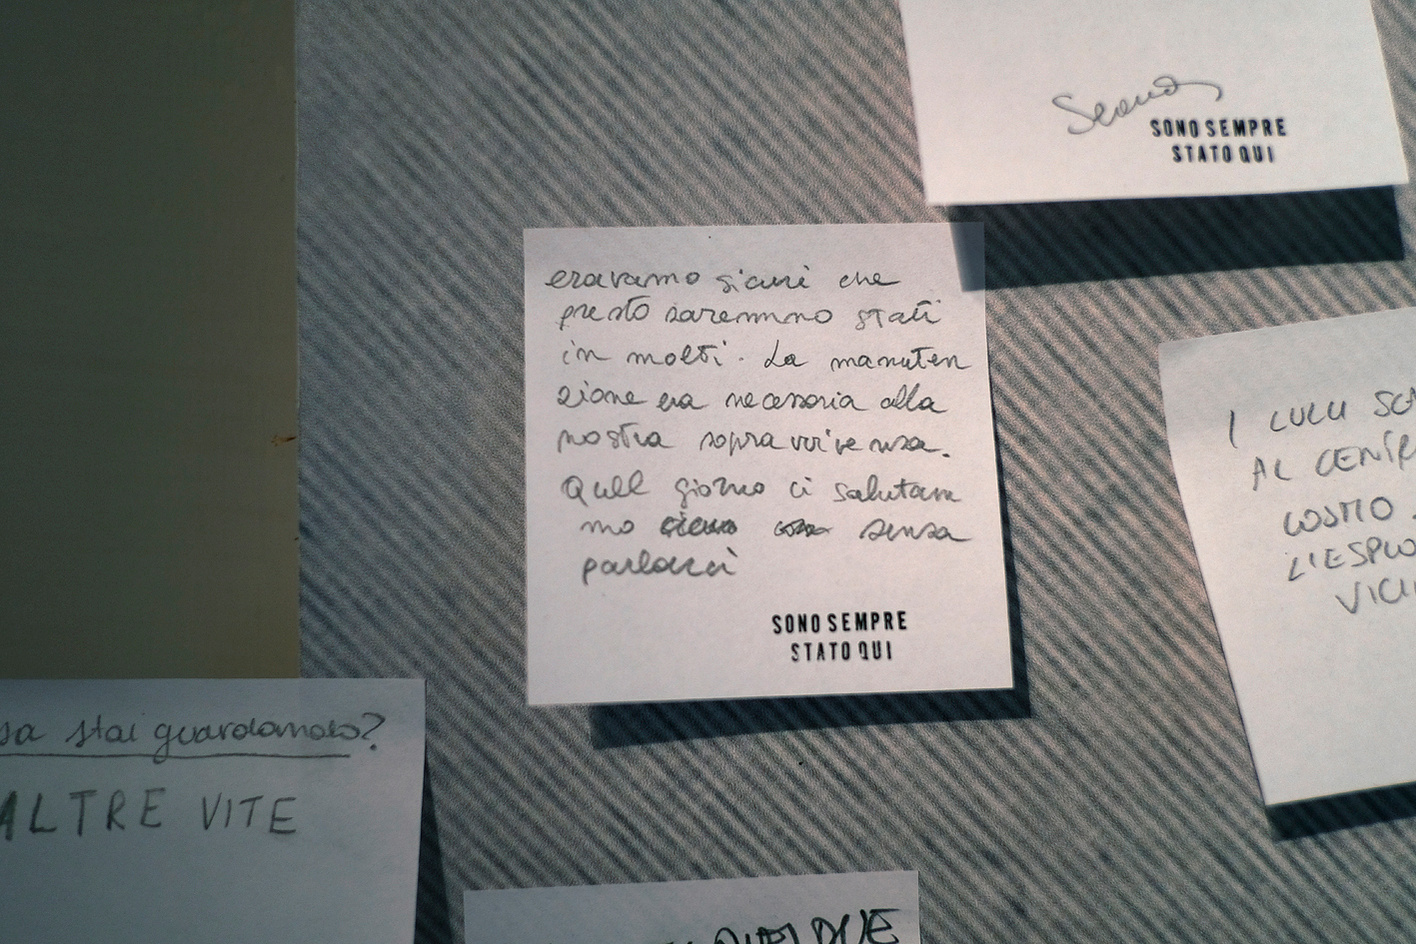 SONO SEMPRE
STATO QUI
eravamo sicuri che
presto saremmo stati
in molti. La manuten
zione era necessaria alla
nostra sopravvivenza.
Quel giorno ci salutam
mo senza
parlarci
SONO SEMPRE
STATO QUI
I LULU
AL
COSMO
sa stai guardando?
ALTRE VITE
QUEI DUE